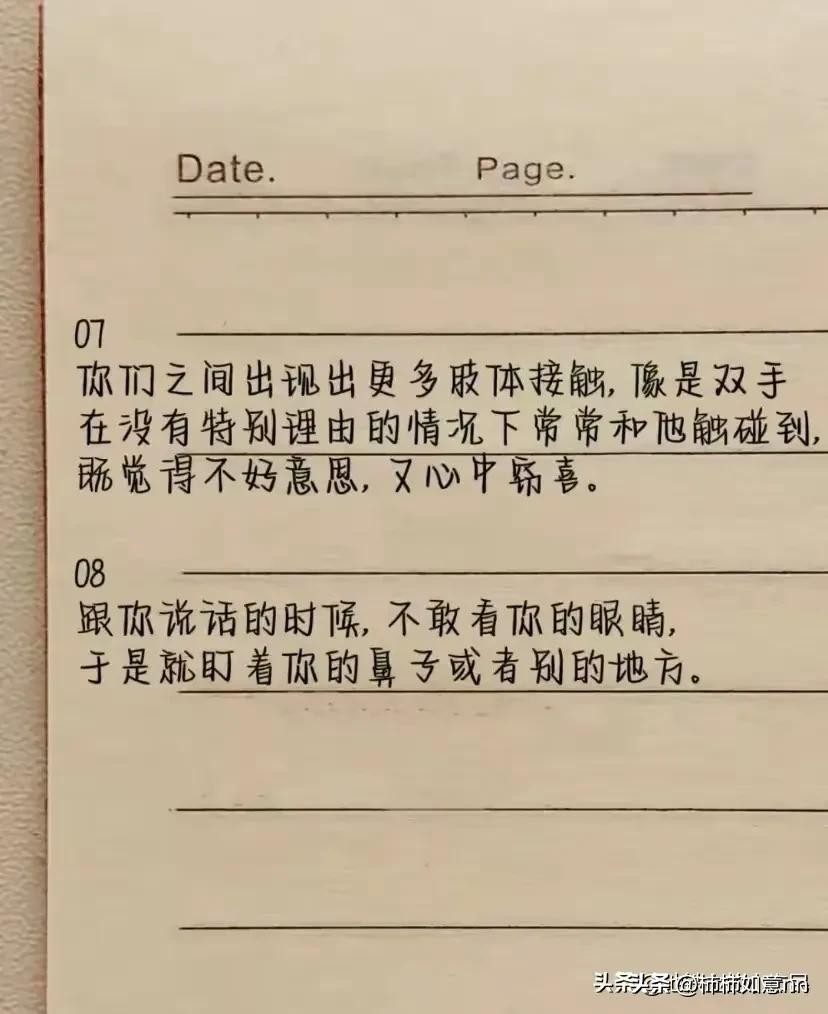 Date. Page.
07
你们之间出现出更多肢体接触,像是双手
在没有特别理由的情况下常常和他触碰到,
既觉得不好意思,又心中窃喜。
08
跟你说话的时候,不敢看你的眼睛,
于是就盯着你的鼻子或者别的地方。
头条 @柿柿如意nn